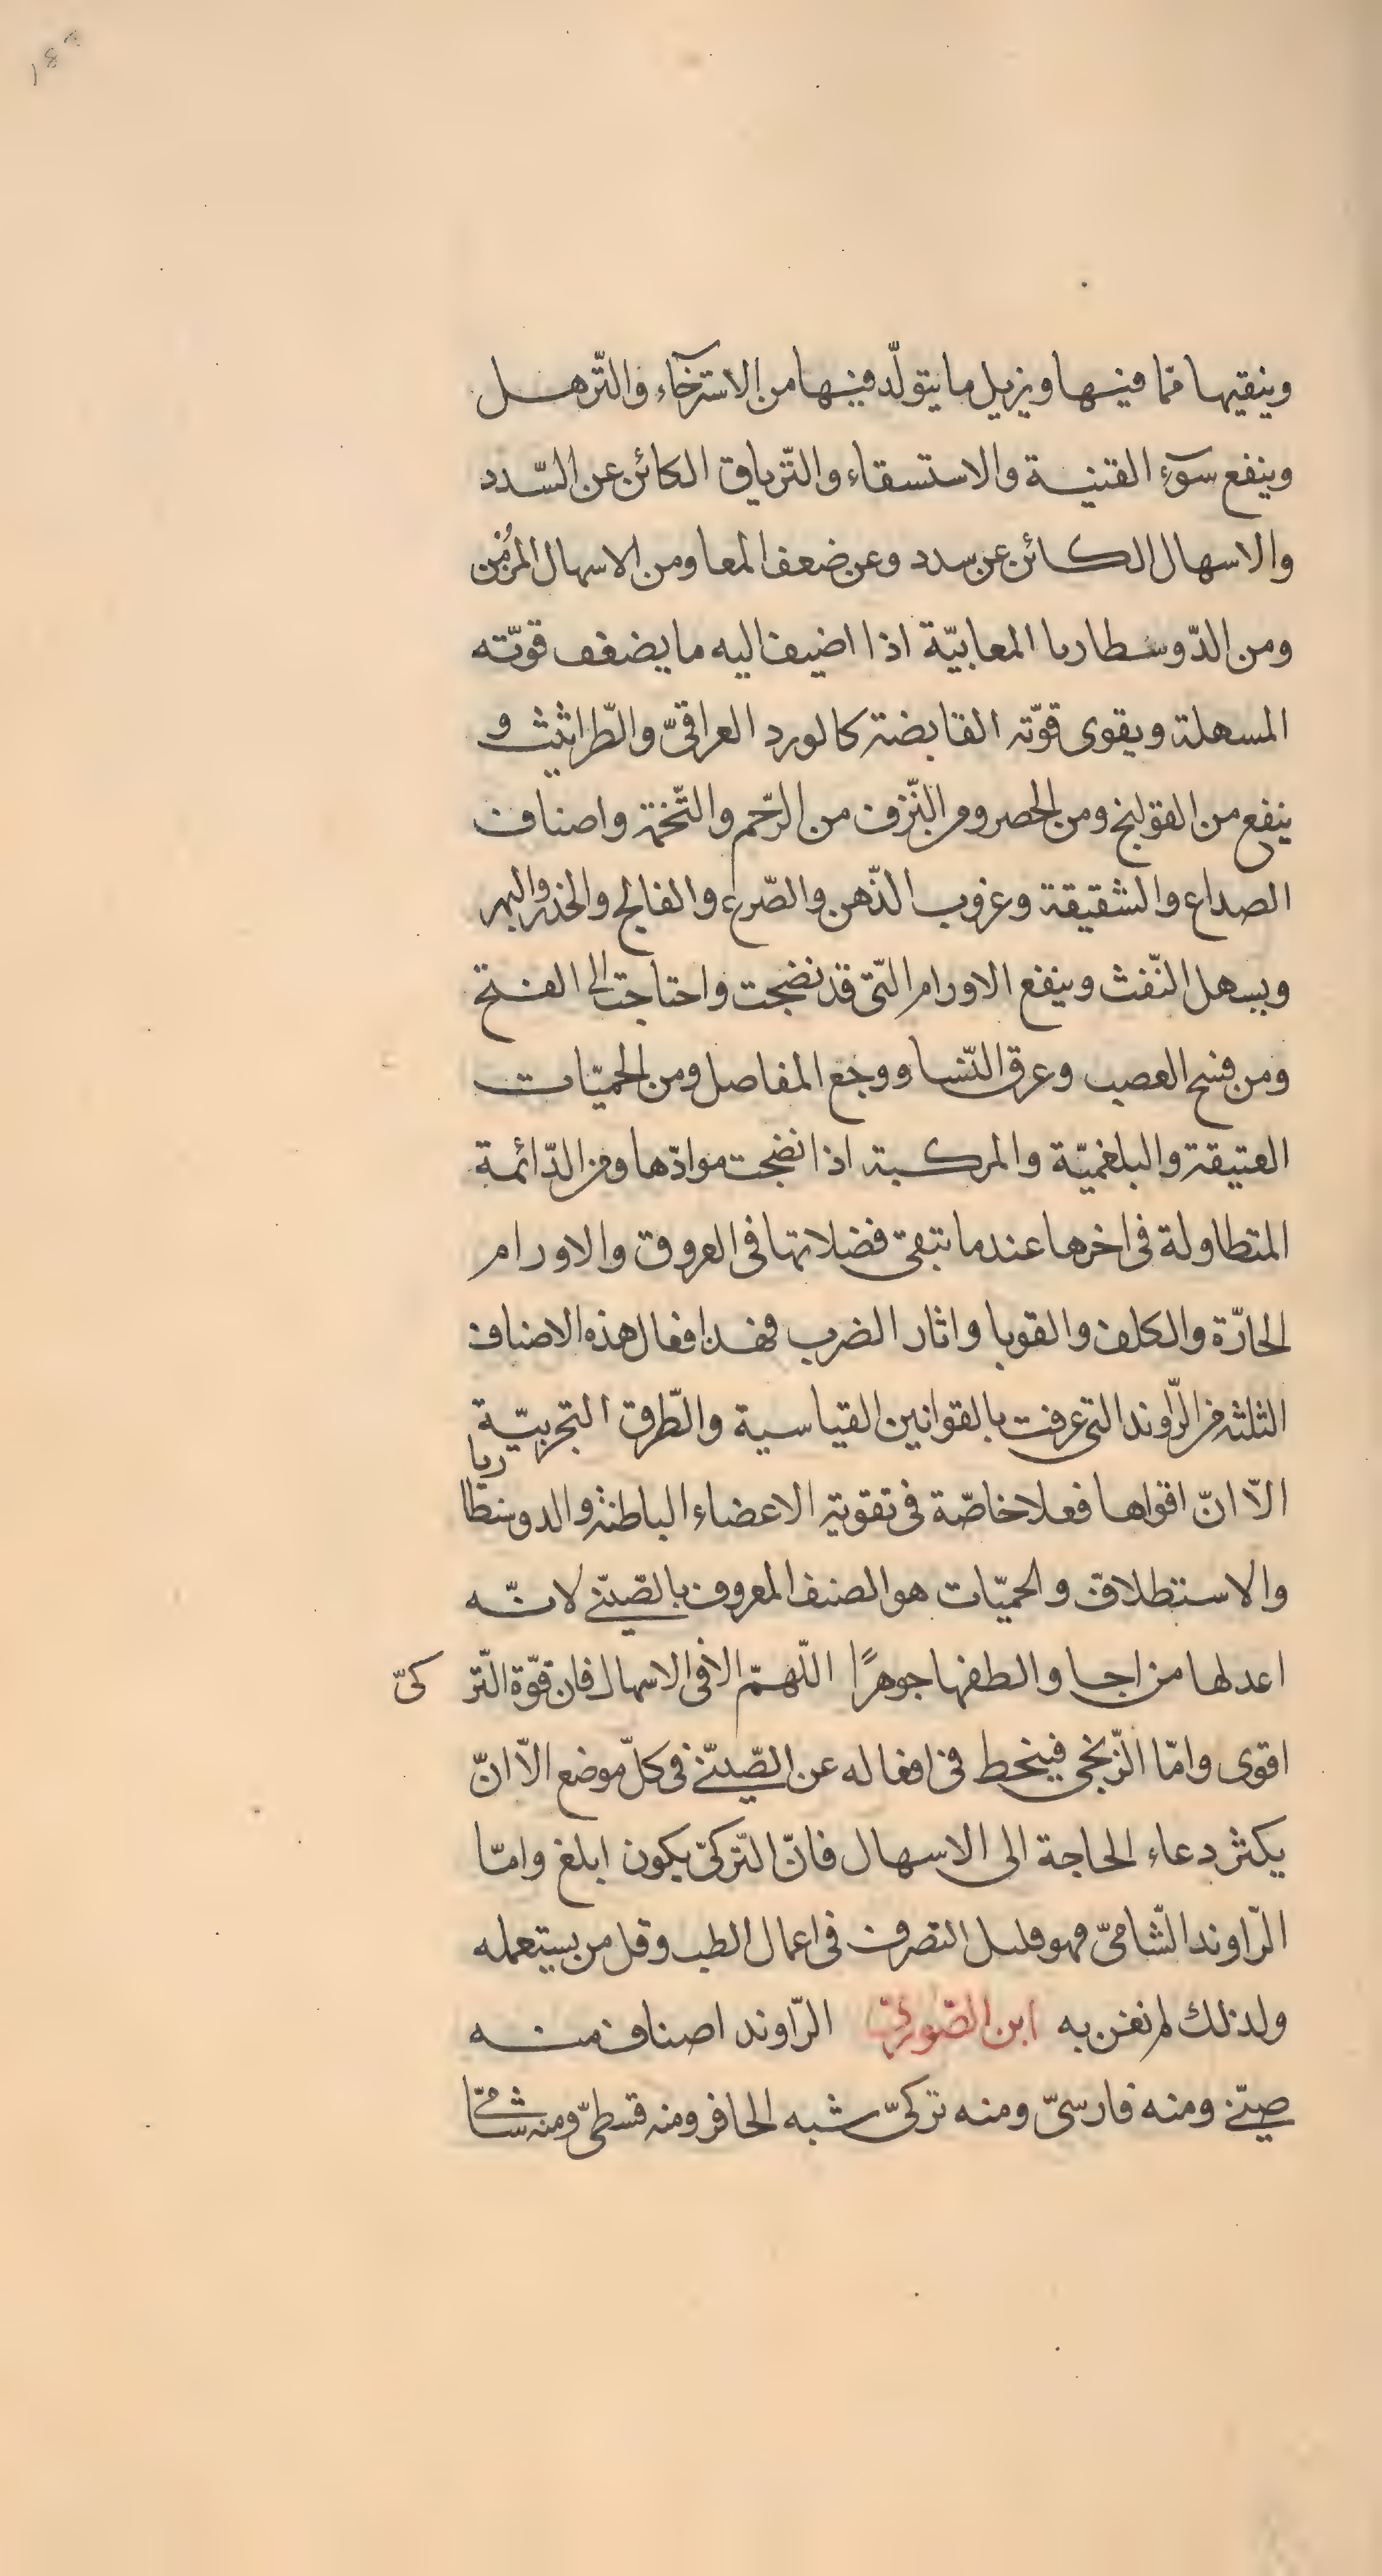 وينقيها ممّا فيها ويزيل ما يتولّد فيها من الاسترخآء والتّرهل
وينفع سوٓء القنية والاستسقاء والتّرياق الكائن عن السّدد
والاسهال الكائن عن سدد وعن ضعف المعا ومن الاسهال المزمن
ومن الدّوسطاريا المعايبّة اذا اضيف اليه ما يضعف قوّته
المسهلة ويقوى قوّته القابضة كالورد العراقىّ والطّراثيث و
ينفع من القولنج ومن الحصر ومن النّزف من الرّحم والتّخمة واصناف
الصداع والشقيقة وعزوب الذّهن والصّرع والفالج والخدر والبهر
ويسهل النّفث وينفع الاورام الّتى قد نضجت واحتاجت الى الفتح
ومن فسخ العصب وعرق النّسا ووجع المفاصل ومن الحميّات
العتيقة والبلغميّة والمركبة اذا نضجت موادّها ومن الدّائمة
المتطاولة فى اخرها عندما تبقى فضلاتها فى العروق والاورام
الحارّة والكلف والقوبا واثار الضرب فهذا افعال هذه الاصناف
الثلثة من الرّاوند التى عرفت بالقوانين القياسية والطّرق التجربيّة
الاّ انّ اقواها فعلا خاصّة فى تقوية الاعضاء الباطنة والدوسنطاريا
والاستطلاق والحميّات هو الصنف المعروف بالصّينّى لانّه
اعدلها مزاجا والطفها جوهرًا اللّهمّ الا فى الاسهال فان قوّة التّركىّ
اقوى وامّا الزّنجى فينحط فى افعاله عن الصّينّى فى كلّ موضع الاّ انّ
يكثر دعاء الحاجة الى الاسهال فانّ التّركىّ يكون ابلغ وامّا
الرّاوند الشّامىّ فهو قليل التصرف فى اعمال الطب وقل من يستعمله
ولذلك لم نعن به ابن الصّورىّ الرّاوند اصناف منه
صينّى ومنه فارسىّ ومنه تركىّ شبه الحافر ومنه قسطىّ ومنه شامىّ